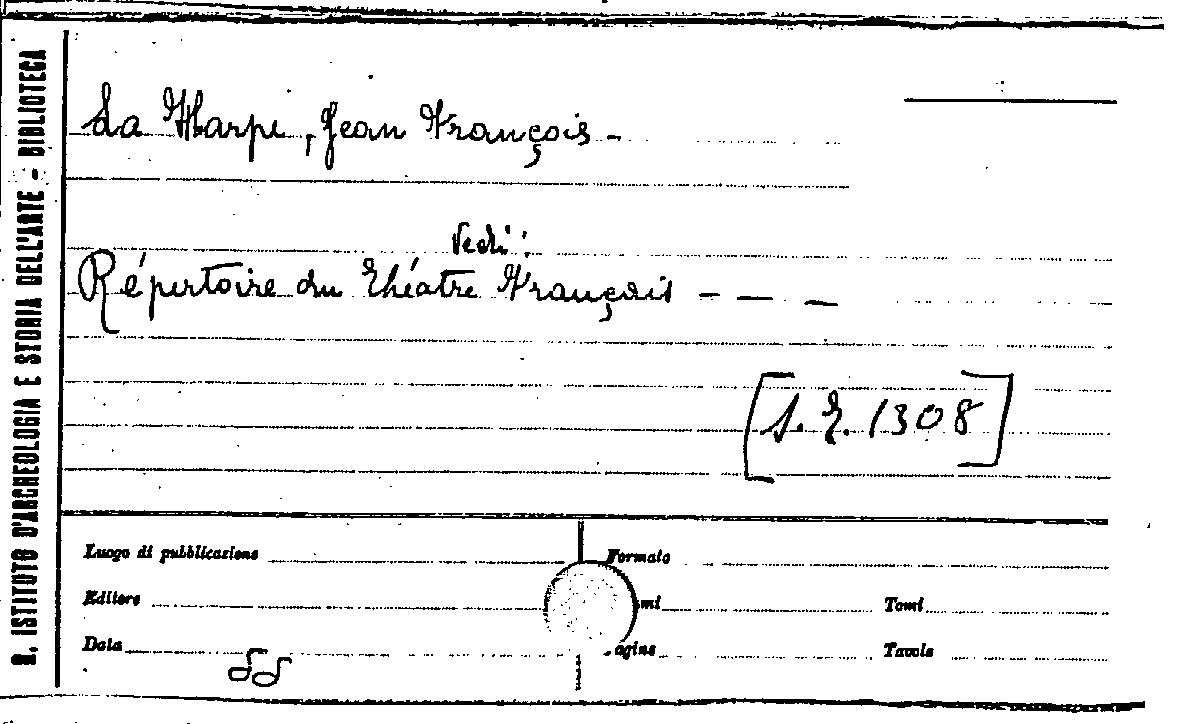 R. ISTITUTO D'ARCHEOLOGIA E STORIA DELL'ARTE - BIBLIOTECA
La Harpe, Jean François -
Vedi:
Répertoire du Théatre Français - - -
[S. E. 1308]
Luogo di pubblicazione
Formato
Editore
mi
Tomi
Data
agine
Tavole